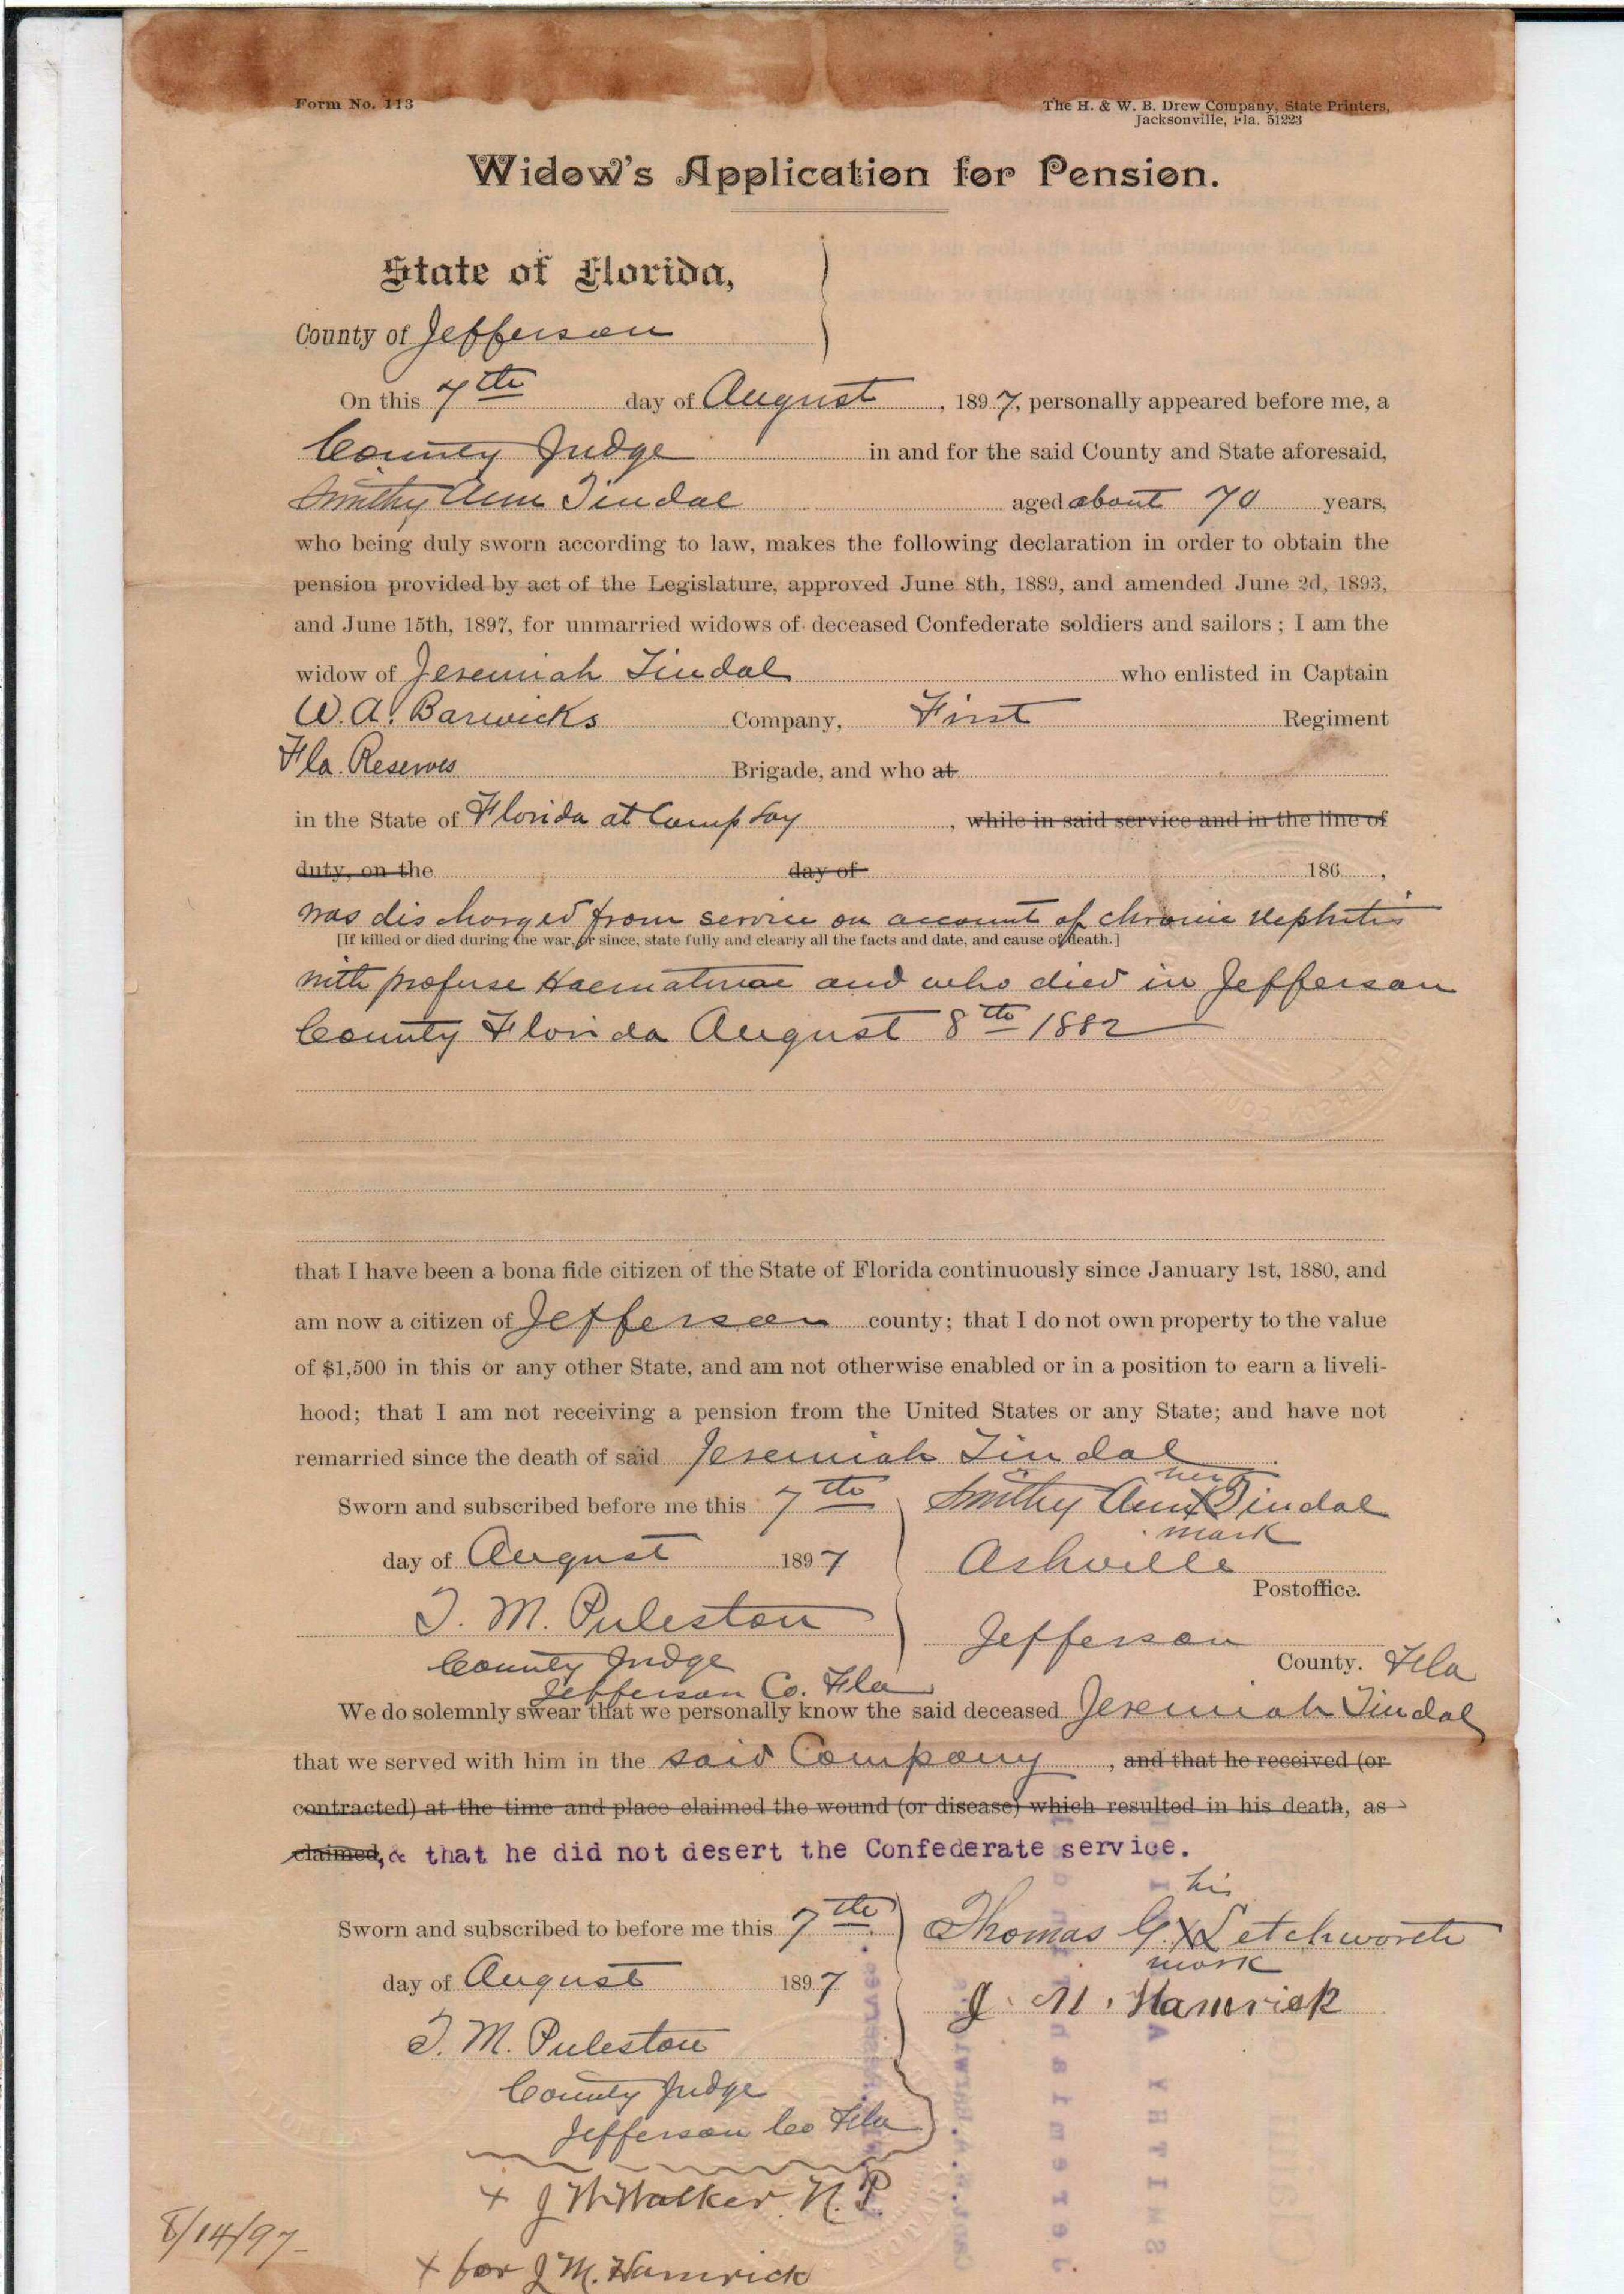 Form No. 113
The H. & W. B. Drew Company, State Printers,
Jacksonville, Fla. 51223
Widow's Application for Pension.
State of Florida,
County of Jefferson
On this 7th day of August, 1897, personally appeared before me, a
County Judge in and for the said County and State aforesaid,
Smithy Ann Tindal aged about 70 years,
who being duly sworn according to law, makes the following declaration in order to obtain the
pension provided by act of the Legislature, approved June 8th, 1889, and amended June 2d, 1893,
and June 15th, 1897, for unmarried widows of deceased Confederate soldiers and sailors; I am the
widow of Jeremiah Tindal who enlisted in Captain
W. A. Barwicks Company, First Regiment
Fla. Reserves Brigade, and who at
in the State of Florida at Camp Jay, while in said service and in the line of
duty, on the day of 186 ,
was discharged from service on account of chronic Nephitis
[If killed or died during the war, or since, state fully and clearly all the facts and date, and cause of death.]
with profuse Haematuriae and who died in Jefferson
County Florida August 8th 1882
that I have been a bona fide citizen of the State of Florida continuously since January 1st, 1880, and
am now a citizen of Jefferson county; that I do not own property to the value
of $1,500 in this or any other State, and am not otherwise enabled or in a position to earn a liveli-
hood; that I am not receiving a pension from the United States or any State; and have not
remarried since the death of said Jeremiah Tindal
her
Sworn and subscribed before me this 7th Smithy Ann X Tindal
mark
day of August 1897 Ashville
Postoffice.
T. M. Puleston Jefferson
County Judge County. Fla
Jefferson Co. Fla
We do solemnly swear that we personally know the said deceased Jeremiah Tindal
that we served with him in the said Company, and that he received (or
contracted) at the time and place claimed the wound (or disease) which resulted in his death, as
claimed, & that he did not desert the Confederate service.
his
Sworn and subscribed to before me this 7th Thomas G. X Letchworth
mark
day of August 1897 J. M. Hamrick
T. M. Puleston
County Judge
Jefferson Co Fla
+ J W Walker N. P
8/14/97
+ for J M. Hamrick